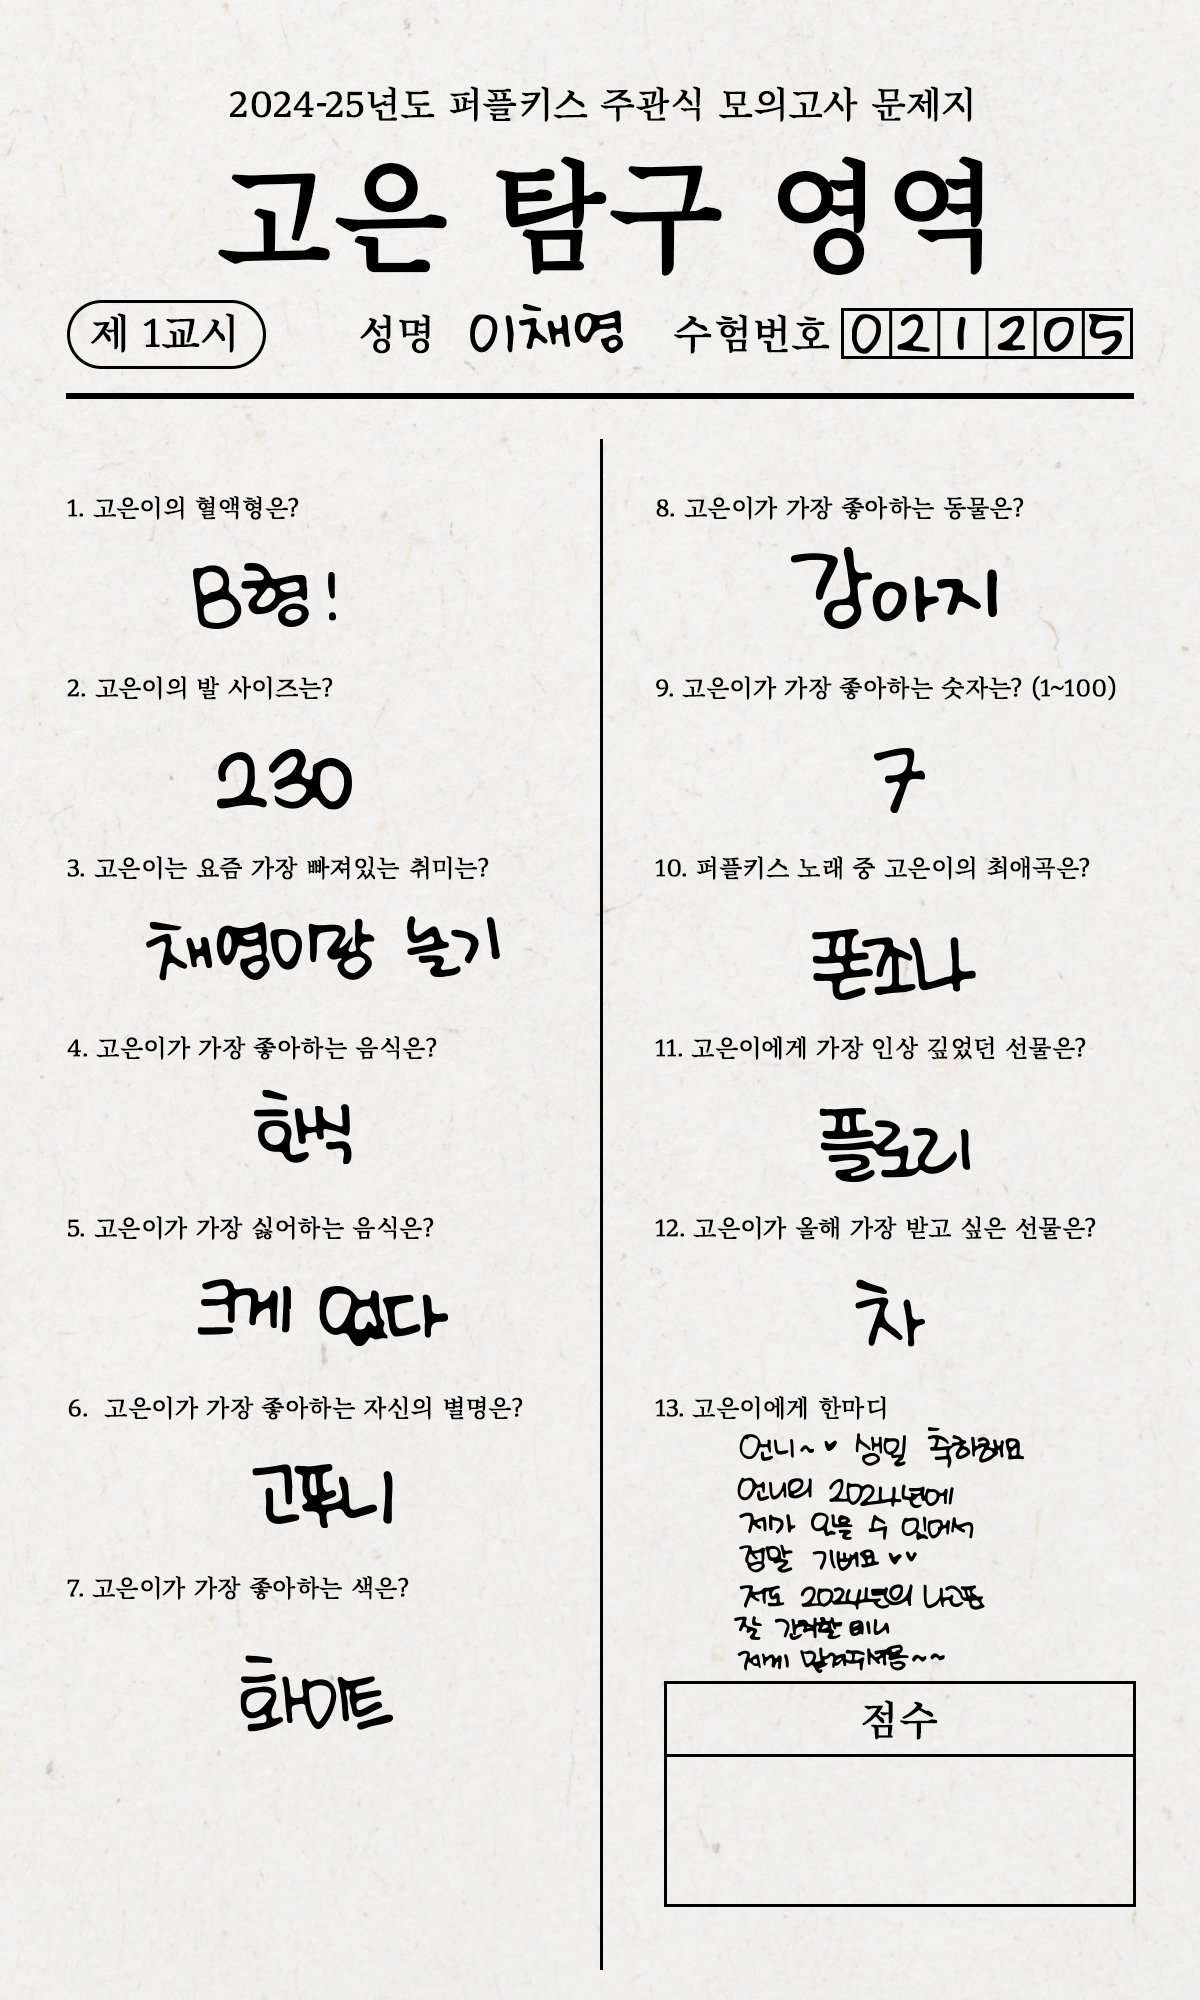 2024-25년도 퍼플키스 주관식 모의고사 문제지
고은 탐구 영역
제 1교시
성명 이채영
수험번호 021205
1. 고은이의 혈액형은?
B형!
2. 고은이의 발 사이즈는?
230
3. 고은이는 요즘 가장 빠져있는 취미는?
채영이랑 놀기
4. 고은이가 가장 좋아하는 음식은?
한식
5. 고은이가 가장 싫어하는 음식은?
크게 없다
6. 고은이가 가장 좋아하는 자신의 별명은?
고푸니
7. 고은이가 가장 좋아하는 색은?
화이트
8. 고은이가 가장 좋아하는 동물은?
강아지
9. 고은이가 가장 좋아하는 숫자는? (1~100)
7
10. 퍼플키스 노래 중 고은이의 최애곡은?
폰조나
11. 고은이에게 가장 인상 깊었던 선물은?
플로리
12. 고은이가 올해 가장 받고 싶은 선물은?
차
13. 고은이에게 한마디
언니~♥ 생일 축하해요
언니의 2024년에
제가 있을 수 있어서
정말 기뻐요♥♥
저도 2024년의 나고은
잘 간직할테니
저에게 맡겨주세용~~
점수